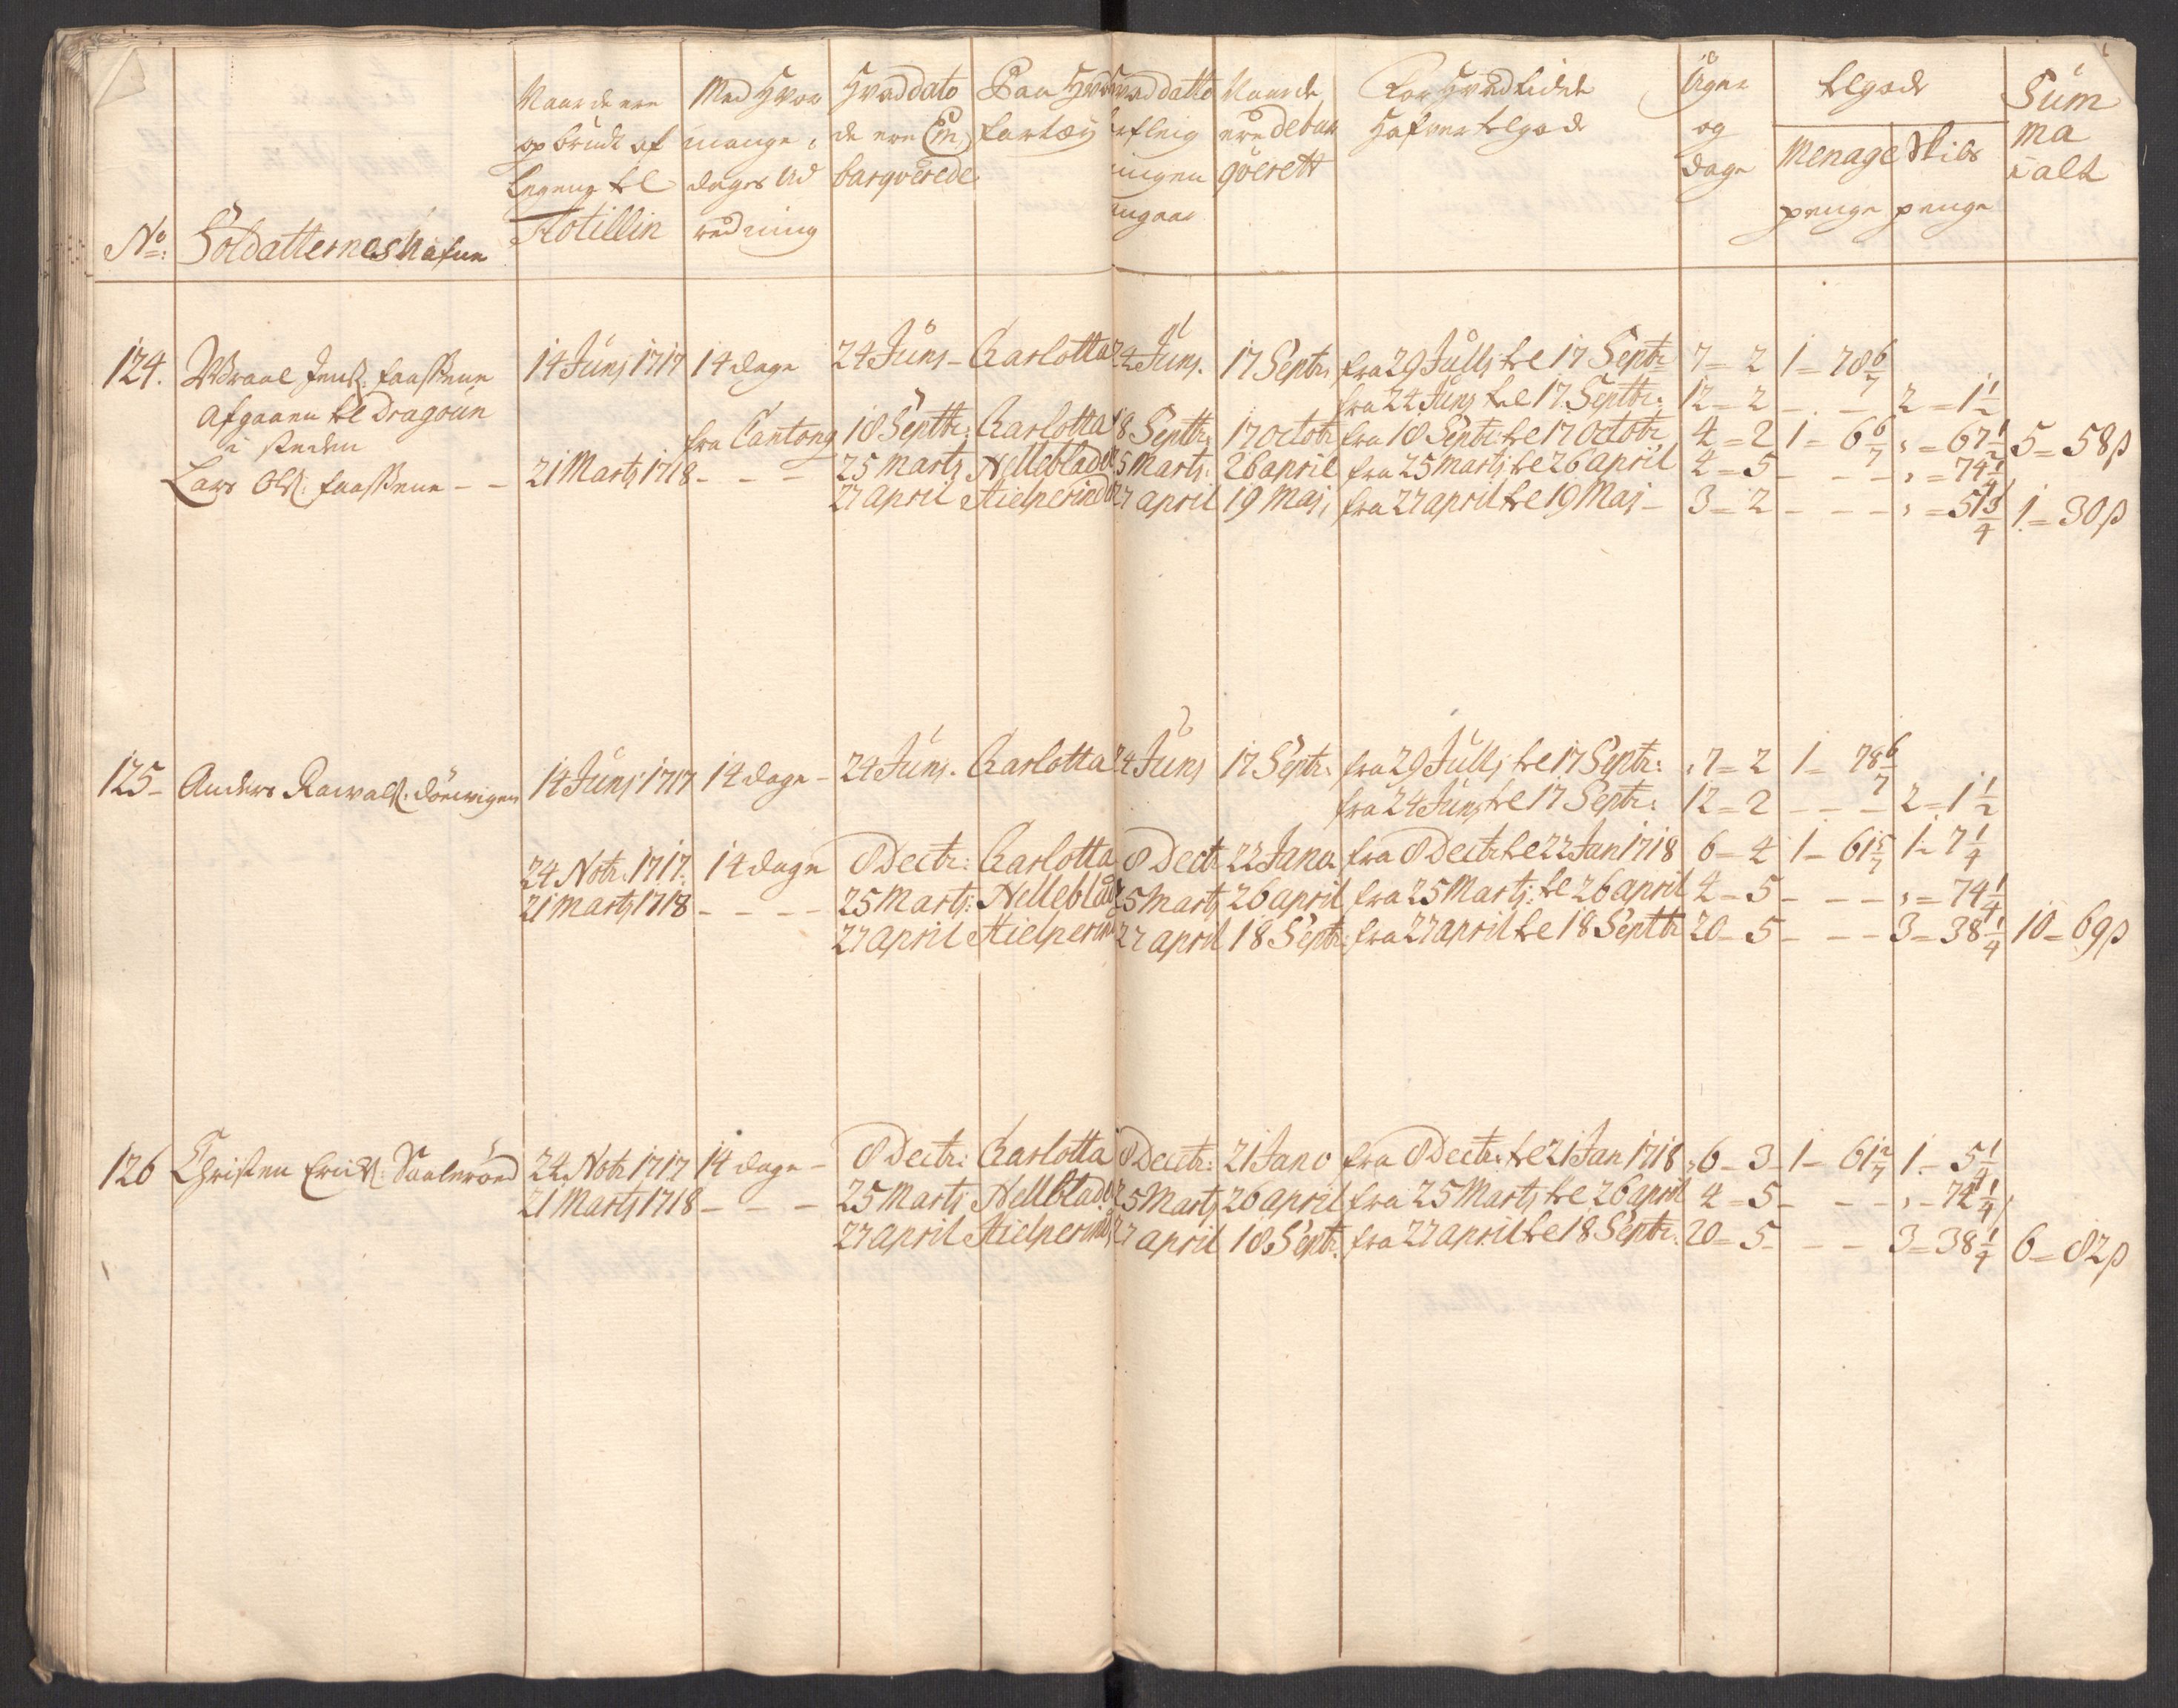 No: Soldatternes Nafne
Naar de ere opbrudt af Legene til Flotillin
Med Hvor mange dages Ud redning
Hvad dato de ere Em barqverede
Paa Hvad Fartøy
Hvad datto forfleig ningen angaar
Naar de ere debar qverett
For Hvad tidt Hafver tilgode
Uger og dage
tilgode
Menage penge
Skibs penge
Summa i alt
124. Jens: 14 Junj 1717 14 dage 24 Junj - Carlotta 24 Junj. 17 Septr. fra 29 Julli til 17 Septr 7 = 2 1 = 78 6/7
Afgaaen til Dragoun fra 24 Junj til 17. Septtr: 12 = 2 - - 2 = 1 1/2
i steden fra Cantong 18 Septtr: Carlotta 18 Septtr. 17 octobr fra 18 Septr til 17 octobr 4 = 2 1 = 6 6/7 " = 67 1/2 5 = 58 β
Lars Ols: - - 21 Marts 1718 - - - 25 Martj Nelleblade 25 Marts: 26 april fra 25 martj til 26 april 4 = 5 - - - " = 74 1/4
27 april Hielperinde 27 april 19 Maj, fra 27 april til 19 Maj - 3 = 2 - - - " = 51 3/4 1 = 30 β
125 - Anders 14 Junj 1717 14 dage - 24 Junj. Carlotta 24 Junj 17 Septr: fra 29 Julli til 17 Septr: 7 = 2 1 = 78 6/7
fra 24 Junj til 17 Septr: 12 = 2 - - - 2 = 1 1/2
24 Notr. 1717. 14 dage 8 Dectr: Carlotta 8 Dectr 22 Janv. fra 8 Dectr til 22 Jan 1718 6 - 4 1 - 61 5/7 1 - 7 1/4
21 marts 1718 - - - - 25 Martj: Nelleblad 25 Martj 26 april fra 25 Martj: til 26 april 4 = 5 - - - " = 74 1/4
27 april Hielperin 27 april 18 Septr: fra 27 april til 18 Septtr 20 - 5 - - - 3 = 38 1/4 10 = 69 β
126 Christen Erichs: 24 Notr 1717 14 dage - 8 Dectr: Carlotta 8 Dectr: 21 Jano fra 8 Dectr: til 21 Jan 1718 6 - 3 - 1 - 61 2/7 1 - 5 1/4
21 Marts 1718 - - - 25 Martj Nellblade 25 Martj 26 april fra 25 Martj til 26 april 4 = 5 - - - " - 74 1/4
27 april Hielperind 27 april 18 Septr. fra 27 april til 18 Septr. 20 = 5 - - - 3 = 38 1/4 6 = 82 β